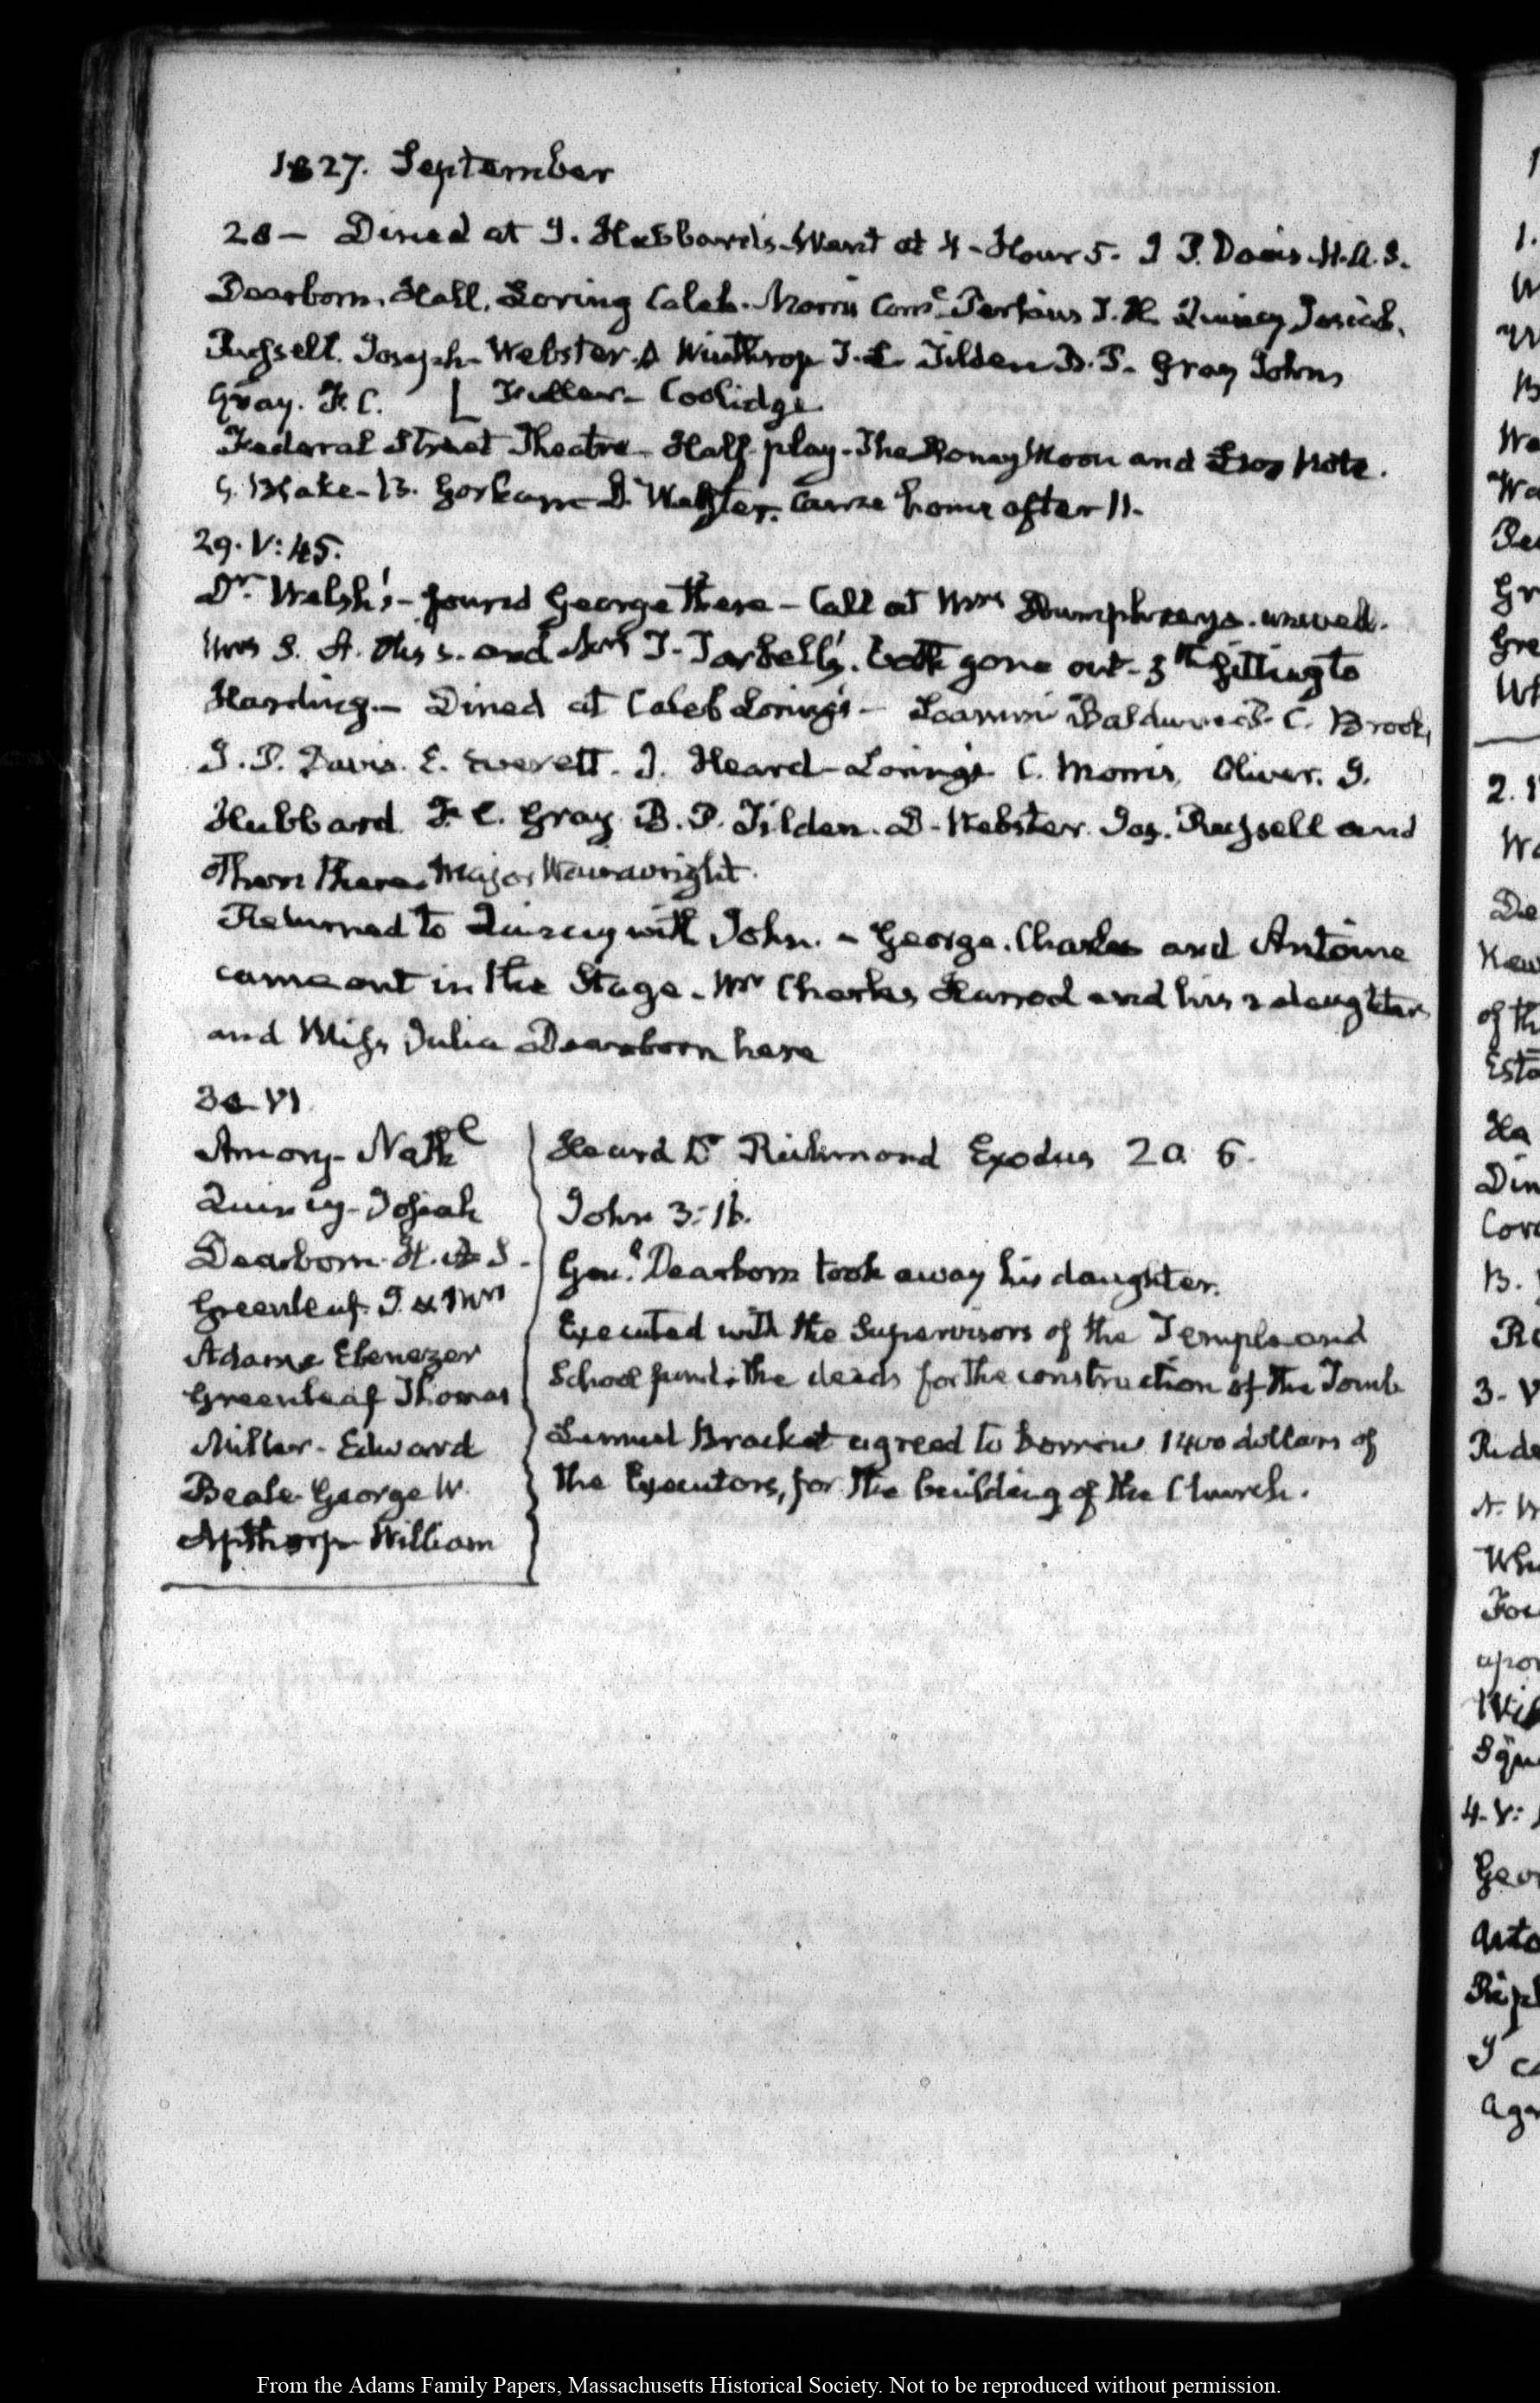 1827. September
28 – Dined at S. Hubbard's. Went at 4 – Hour 5. I P. Davis. H. A. S.
Dearborn, Hall, Loring Caleb. Morris Come. Perkins T. H. Quincy Josiah.
Russell. Joseph – Webster. D Winthrop T. L. Tilden B. P. Gray John
Gray. F. C. [ Fuller – Coolidge
Federal Street Theatre – Half play – The Honey Moon and Note.
G. Blake – B. Gorham D. Webster. Came home after 11.
29. V: 45.
Dr. Welsh's – found George there – Call at Mrs Humphreys. unwell.
Mrs S. A. Otis's. and Mrs T. Tarbell's. both gone out – 3th sitting to
Harding – Dined at Caleb Loring's – Loammi Baldwin – P. C. Brooks,
I. P. Davis. E. Everett. J. Heard – Loring's C. Morris, Oliver. S.
Hubbard. F. C. Gray. B. P. Tilden. D. Webster. Jos. Russell and
others there. Major Wainwright.
Returned to Quincy with John. – George. Charles and Antoine
came out in the Stage. Mr Charles Harrod and his 2 daughters
and Miss Julia Dearborn here
30. VI
Amory – Nathl
Quincy – Josiah
Dearborn. H. A S.
Greenleaf. J. & Mrs
Adams Ebenezer
Greenleaf Thomas
Miller – Edward
Beale George W.
Apthorp William
Heard Dr Richmond Exodus 20. 6.
John 3. 16.
Genl. Dearborn took away his daughter.
Executed with the Supervisors of the Temple and
School fund, the deeds for the construction of the Tomb
Lemuel Bracket agreed to borrow 1400 dollars of
the Executors, for the building of the Church.
From the Adams Family Papers, Massachusetts Historical Society. Not to be reproduced without permission.